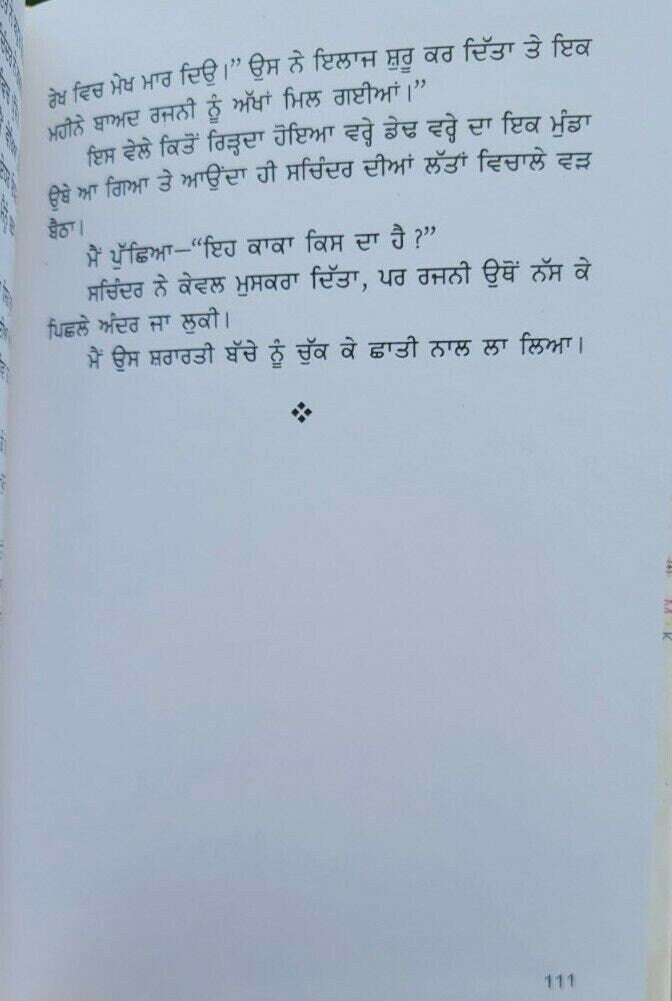 ਰੇਖ ਵਿਚ ਮੇਖ ਮਾਰ ਦਿਉ।” ਉਸ ਨੇ ਇਲਾਜ ਸ਼ੁਰੂ ਕਰ ਦਿੱਤਾ ਤੇ ਇਕ
ਮਹੀਨੇ ਬਾਅਦ ਰਜਨੀ ਨੂੰ ਅੱਖਾਂ ਮਿਲ ਗਈਆਂ।”
ਇਸ ਵੇਲੇ ਕਿਤੋਂ ਰਿੜ੍ਹਦਾ ਹੋਇਆ ਵਰ੍ਹੇ ਡੇਢ ਵਰ੍ਹੇ ਦਾ ਇਕ ਮੁੰਡਾ
ਉਥੇ ਆ ਗਿਆ ਤੇ ਆਉਂਦਾ ਹੀ ਸਚਿੰਦਰ ਦੀਆਂ ਲੱਤਾਂ ਵਿਚਾਲੇ ਵੜ
ਬੈਠਾ।
ਮੈਂ ਪੁੱਛਿਆ—“ਇਹ ਕਾਕਾ ਕਿਸ ਦਾ ਹੈ ?”
ਸਚਿੰਦਰ ਨੇ ਕੇਵਲ ਮੁਸਕਰਾ ਦਿੱਤਾ, ਪਰ ਰਜਨੀ ਉਥੋਂ ਨੱਸ ਕੇ
ਪਿਛਲੇ ਅੰਦਰ ਜਾ ਲੁਕੀ।
ਮੈਂ ਉਸ ਸ਼ਰਾਰਤੀ ਬੱਚੇ ਨੂੰ ਚੁੱਕ ਕੇ ਛਾਤੀ ਨਾਲ ਲਾ ਲਿਆ।
111